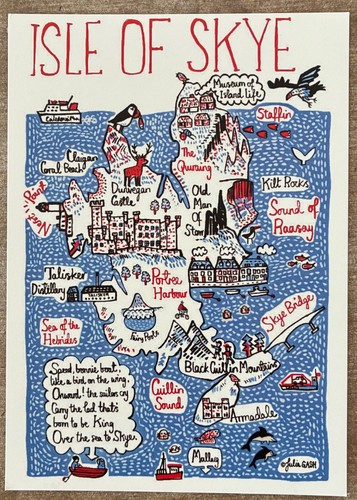 ISLE OF SKYE
Museum of
Island Life
Caledonian Mac
Staffin
Claigan
Coral Beach
The
Quiraing
Dunvegan
Castle
Kilt Rocks
Neist Point
Old
Man
Of
Storr
Sound of
Raasay
Talisker
Distillery
Portree
Harbour
Skye Bridge
Sea of the
Hebrides
Fairy Pools
Black Cuillin Mountains
Speed, bonnie boat,
like a bird on the wing,
Onward! the sailors cry
Carry the lad that's
born to be King
Over the sea to Skye.
Cuillin
Sound
Armadale
Mallaig
©Julia GASH